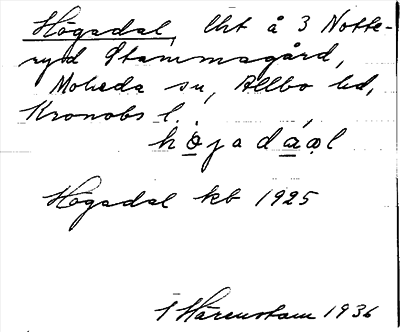 Högadal, lht å 3 Notte-
ryd Stammagård,
Moheda sn, Allbo hd,
Kronobs l.
höjadáal
Högadal kb 1925
Härenstam 1936